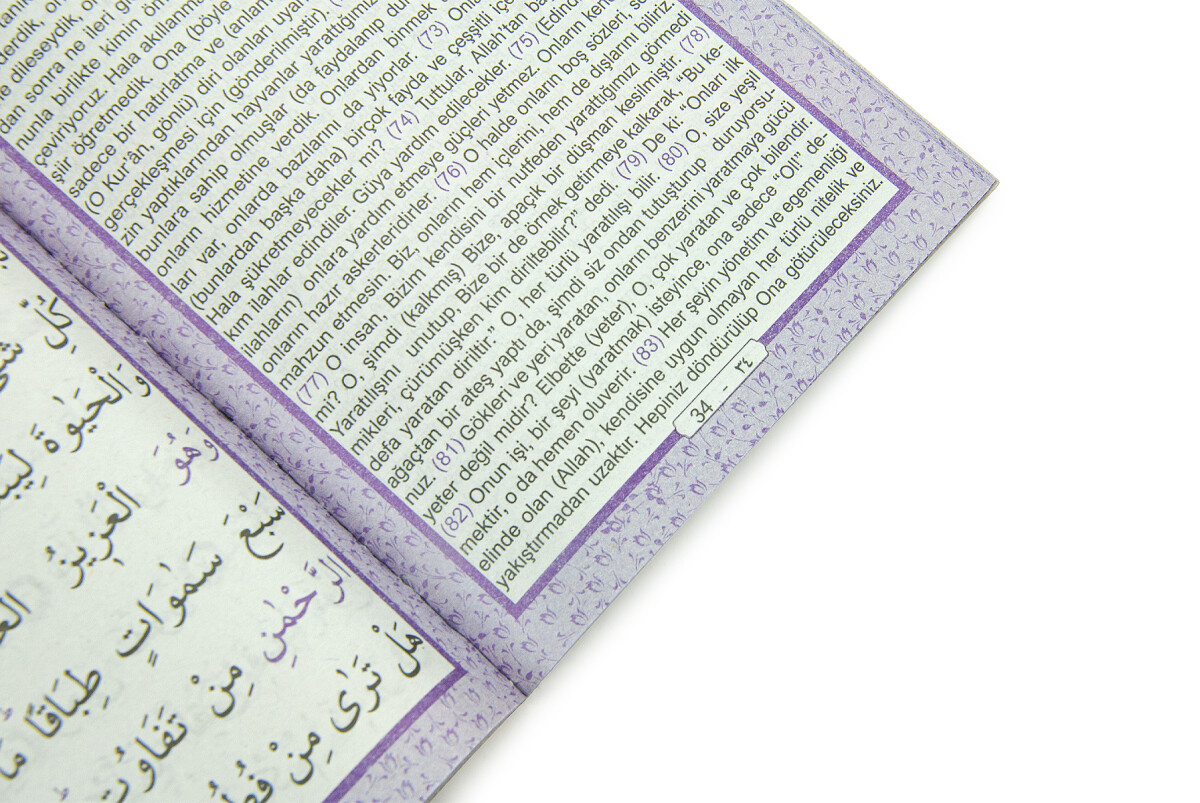 dan sonra ne ileri
nunla birlikte kimin
çeviriyoruz. Hala
şiir öğretmedik. Ona (böyle
sadece bir hatırlatma ve
(O Kur'ân, gönlü) diri olanları
gerçekleşmesi için (gönderilmiştir).
zin yaptıklarından hayvanlar yarattığımız
bunlara sahip olmuşlar (da faydalanıp
onların hizmetine verdik. Onlardan binmek
arı var, onlardan bazılarını da yiyorlar. (73)
(bunlardan başka daha) birçok fayda ve çeşitli
Hala şükretmeyecekler mi? (74) Tuttular, Allah'tan
kım ilahlar edindiler. Güya yardım edilecekler. (75)
ilahların) onlara yardım etmeye güçleri yetmez. Onların
onların hazır askerleridirler. (76) O halde onların boş sözleri,
mahzun etmesin. Biz, onların hem içlerini, hem de dışlarını biliriz.
(77) O insan, Bizim kendisini bir nutfeden yarattığımızı görmedi
mi? O, şimdi (kalkmış) Bize, apaçık bir düşman kesilmiştir. (78)
Yaratılışını unutup, Bize bir de örnek getirmeye kalkarak, “Bu ke-
mikleri, çürümüşken kim diriltebilir?” dedi. (79) De ki: “Onları ilk
defa yaratan diriltir.” O, her türlü yaratılışı bilir. (80) O, size yeşil
ağaçtan bir ateş yaptı da, şimdi siz ondan tutuşturup duruyorsu-
nuz. (81) Gökleri ve yeri yaratan, onların benzerini yaratmaya gücü
yeter değil midir? Elbette (yeter), O, çok yaratan ve çok bilendir.
(82) Onun işi, bir şeyi (yaratmak) isteyince, ona sadece “Ol!” de-
mektir, o da hemen oluverir. (83) Her şeyin yönetim ve egemenliği
elinde olan (Allah), kendisine uygun olmayan her türlü nitelik ve
yakıştırmadan uzaktır. Hepiniz döndürülüp Ona götürüleceksiniz.
34 - ٣٤
كُلِّ
وَالْحَيٰوةَ
وَهُوَ الْعَزِيزُ
سَبْعَ سَمٰوَاتٍ طِبَاقًا مَا
الرَّحْمٰنِ مِنْ تَفَاوُتٍ
هَلْ تَرٰى مِنْ